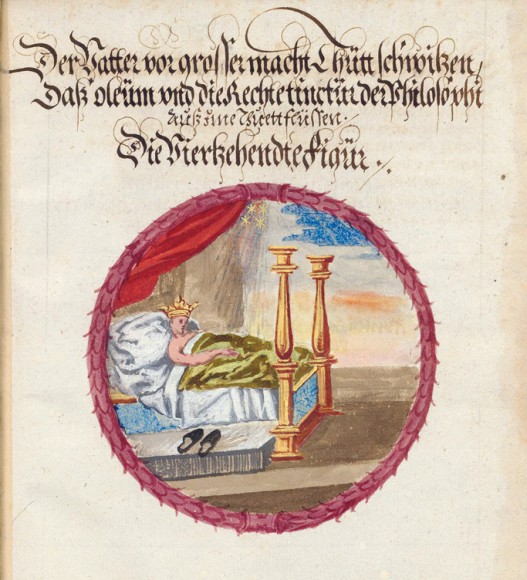 Der Vatter vor grosser macht Thütt schwitzen,
Daß oleum vnd die Rechte tinctür der Philosophi
Auß ime Thuett flüssen.
Die Vierzehendte Figur.